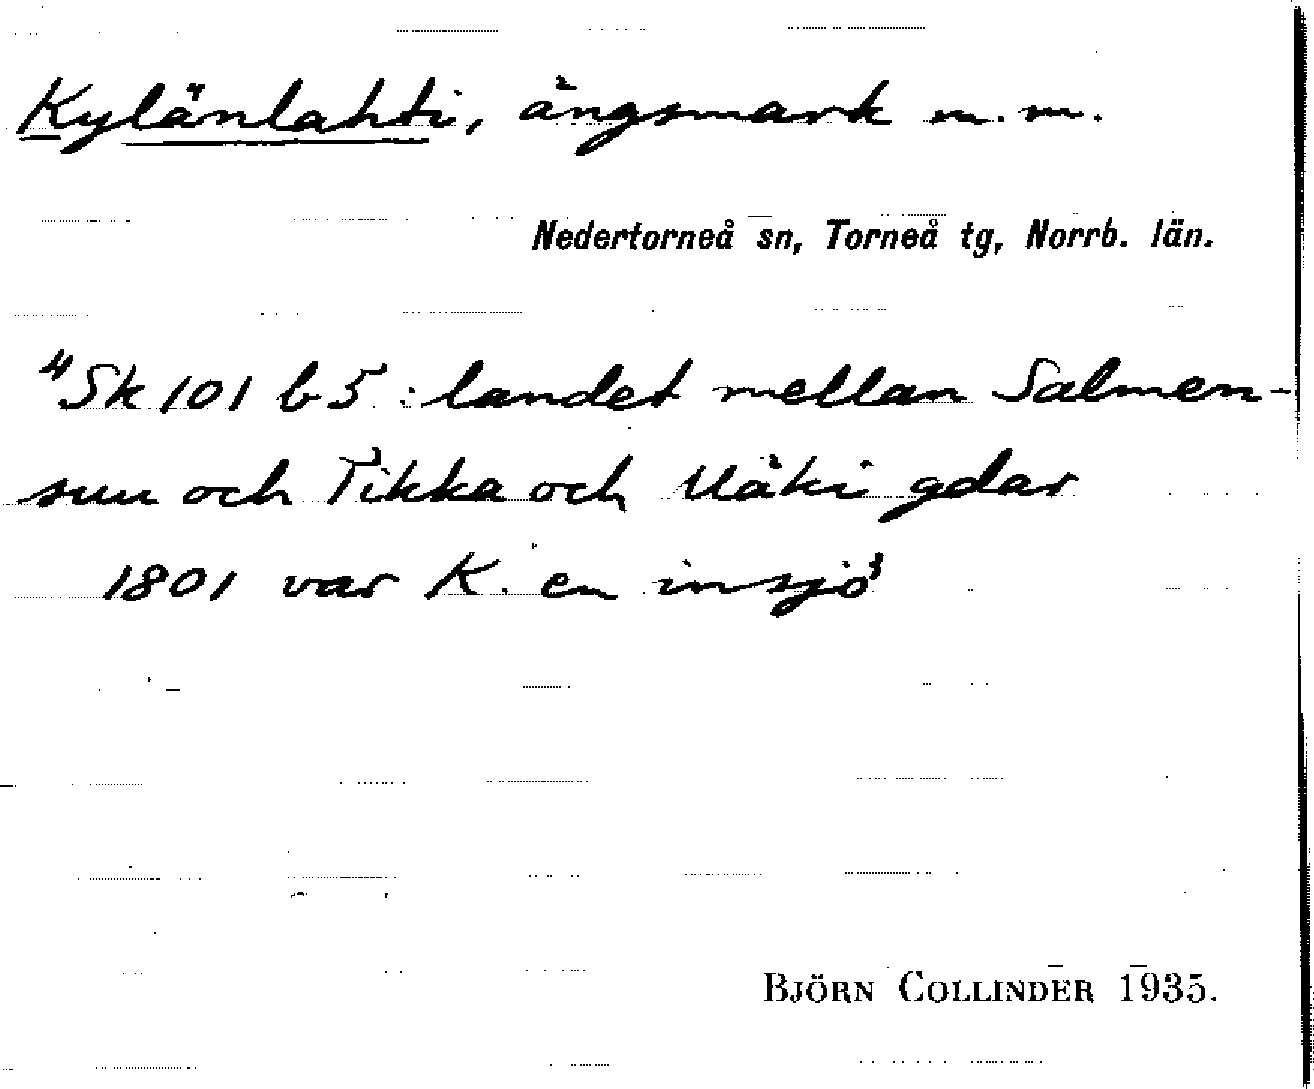 Kylänlahti, ängsmark m.m.
Nedertorneå sn, Torneå tg, Norrb. län.
"Sk 101 b5: landet mellan Salmen-
suu och Tikka och Mäki gdar
1801 var K. en insjö"
BJÖRN COLLINDER 1935.